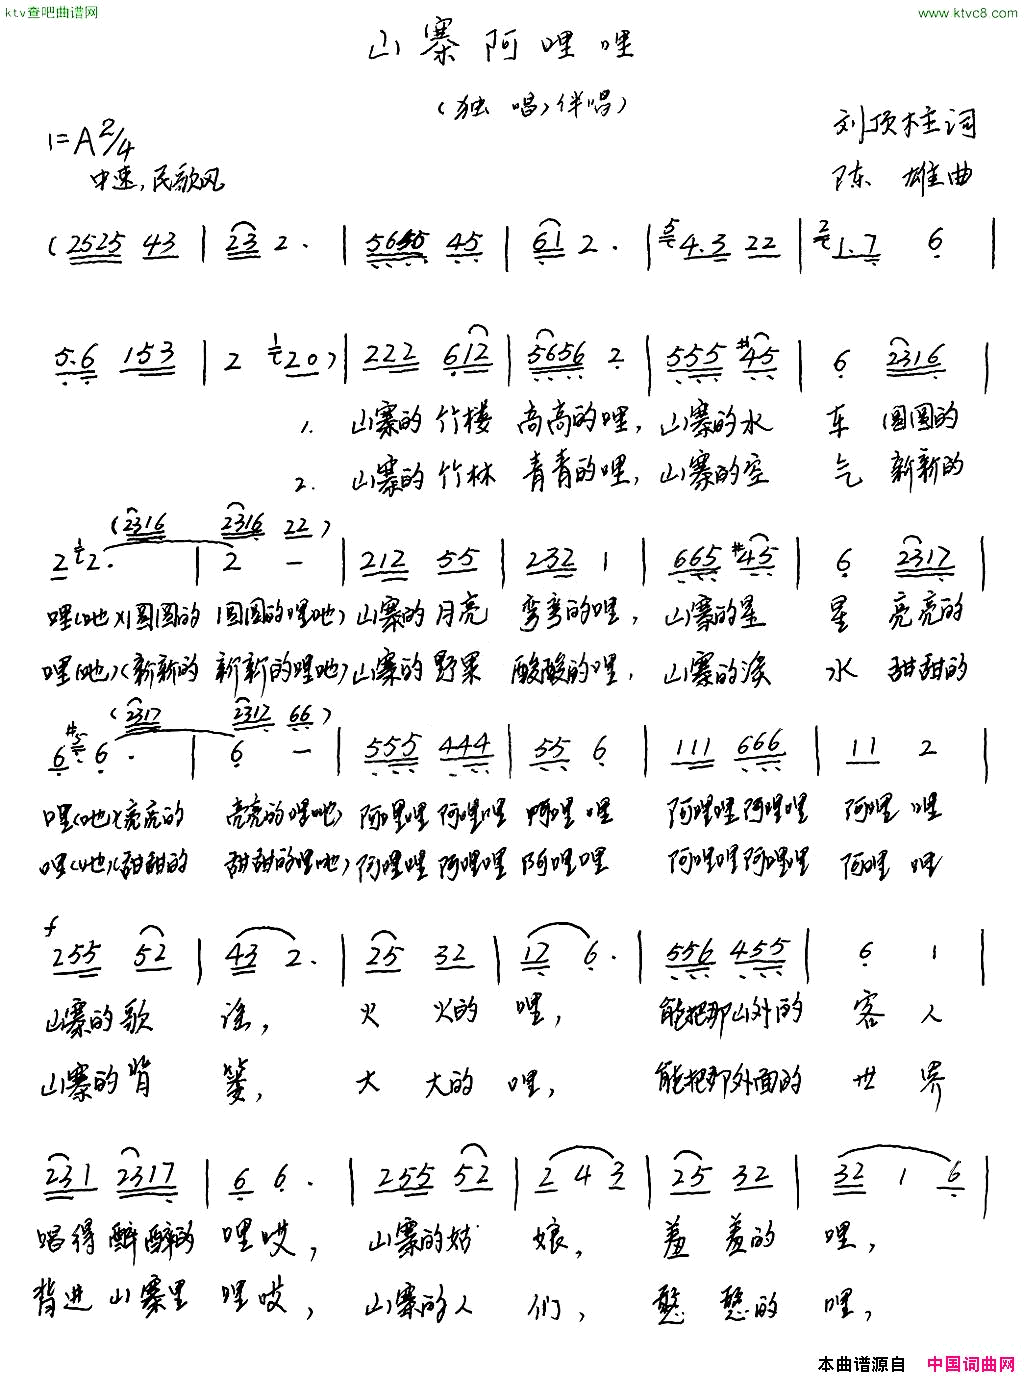 ktv查吧曲谱网
www.ktvc8.com
山寨阿哩哩
(独 唱、伴唱)
1=A 2/4
刘顶柱词
中速,民歌风
陈 雄曲
(2525 43 | 23 2. | 5645 45 | 61 2. | 5 4.3 22 | 2 1.7 6 |
5.6 153 | 2 1 20) | 222 612 | 5656 2 | 555 #45 | 6 2316 |
1. 山寨的 竹楼 高高的哩, 山寨的水 车 圆圆的
2. 山寨的 竹林 青青的哩, 山寨的空 气 新新的
(2316 2316 22)
2 1 2. | 2 - | 212 55 | 232 1 | 665 #45 | 6 2317 |
哩(吔)(圆圆的 圆圆的哩吔) 山寨的 月亮 弯弯的哩, 山寨的星 星 亮亮的
哩(吔)(新新的 新新的哩吔) 山寨的 野果 酸酸的哩, 山寨的溪 水 甜甜的
(2317 2312 66)
6 #5 6. | 6 - | 555 444 | 55 6 | 111 666 | 11 2 |
哩(吔)(亮亮的 亮亮的哩吔) 阿哩哩 阿哩哩 阿哩 哩 阿哩哩阿哩哩 阿哩 哩
哩(吔)(甜甜的 甜甜的哩吔) 阿哩哩 阿哩哩 阿哩哩 阿哩哩阿哩哩 阿哩 哩
f
255 52 | 43 2. | 25 32 | 12 6. | 556 455 | 6 1 |
山寨的歌 谣, 火 火的 哩, 能把那山外的 客 人
山寨的背 篓, 大 大的 哩, 能把那外面的 世 界
231 2317 | 6 6. | 255 52 | 2 4 3 | 25 32 | 32 1 6 |
唱得 醉醉的 哩哎, 山寨的姑 娘, 羞 羞的 哩,
背进 山寨里 哩哎, 山寨的人 们, 憨 憨的 哩,
本曲谱源自 中国词曲网